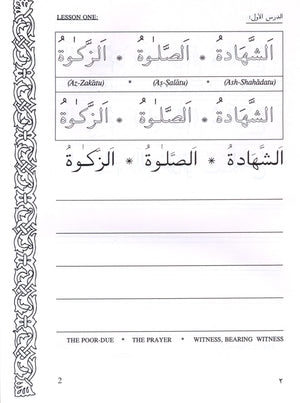 LESSON ONE: الدرس الأول:
اَلشَّهَادَةُ * اَلصَّلٰوةُ * اَلزَّكٰوةُ
(Az-Zakātu) * (Aṣ-Ṣalātu) * (Ash-Shahādatu)
اَلشَّهَادَةُ * اَلصَّلٰوةُ * اَلزَّكٰوةُ
اَلشَّهَادَةُ * اَلصَّلٰوةُ * اَلزَّكٰوةُ
THE POOR-DUE * THE PRAYER * WITNESS, BEARING WITNESS
2 ٢